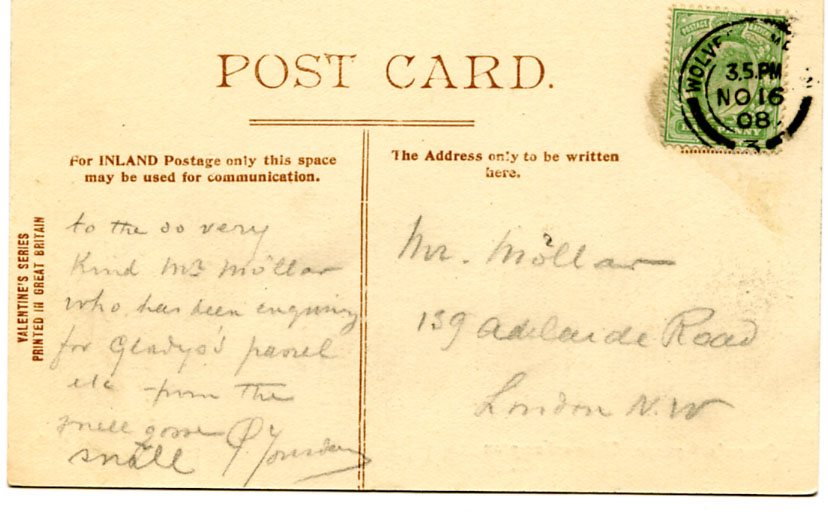 POST CARD.
WOLVE
3.5.PM
NO 16
08
3
PENNY
For INLAND Postage only this space
may be used for communication.
The Address only to be written
here.
VALENTINE'S SERIES
PRINTED IN GREAT BRITAIN
to the so very
Kind Mr Möllar
who has been enquiring
for Gladys's parsel
etc from the
small
Mr. Möllar
139 Adelaide Road
London N.W